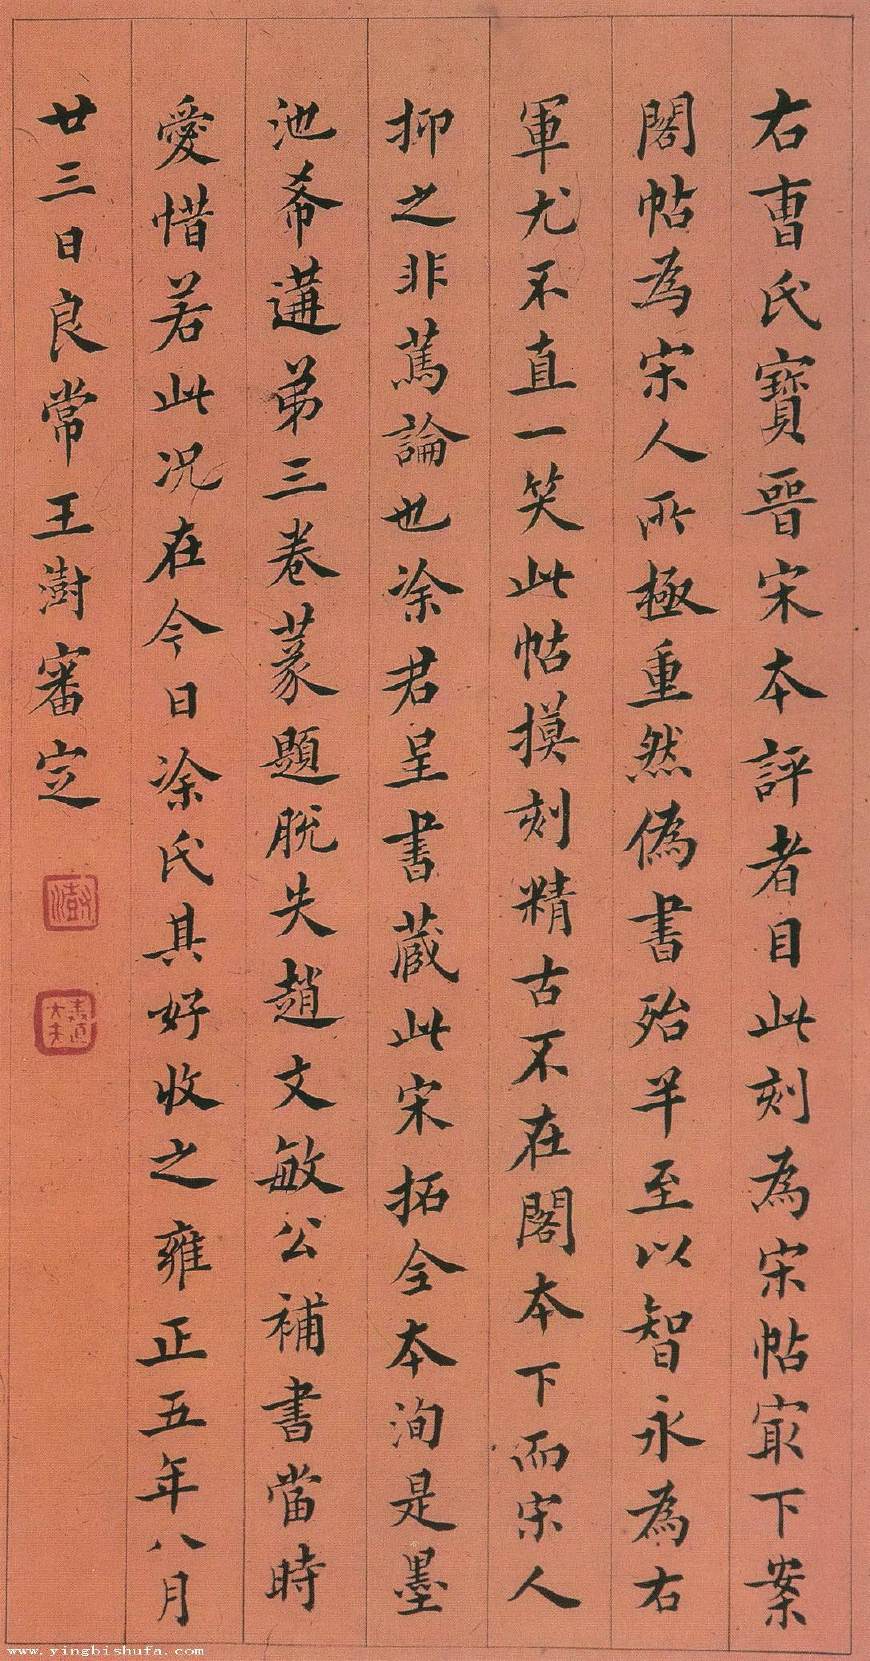 右曹氏寶晉宋本評者目此刻為宋帖冣下案
閣帖為宋人所極重然偽書殆半至以智永為右
軍尤不直一笑此帖摸刻精古不在閣本下而宋人
抑之非篤論也涂君呈書蔵此宋拓全本洵是墨
池希遘弟三卷篆題脫失趙文敏公補書當時
愛惜若此況在今日涂氏其好收之雍正五年八月
廿三日良常王澍審定
澍
www.yingbishufa.com